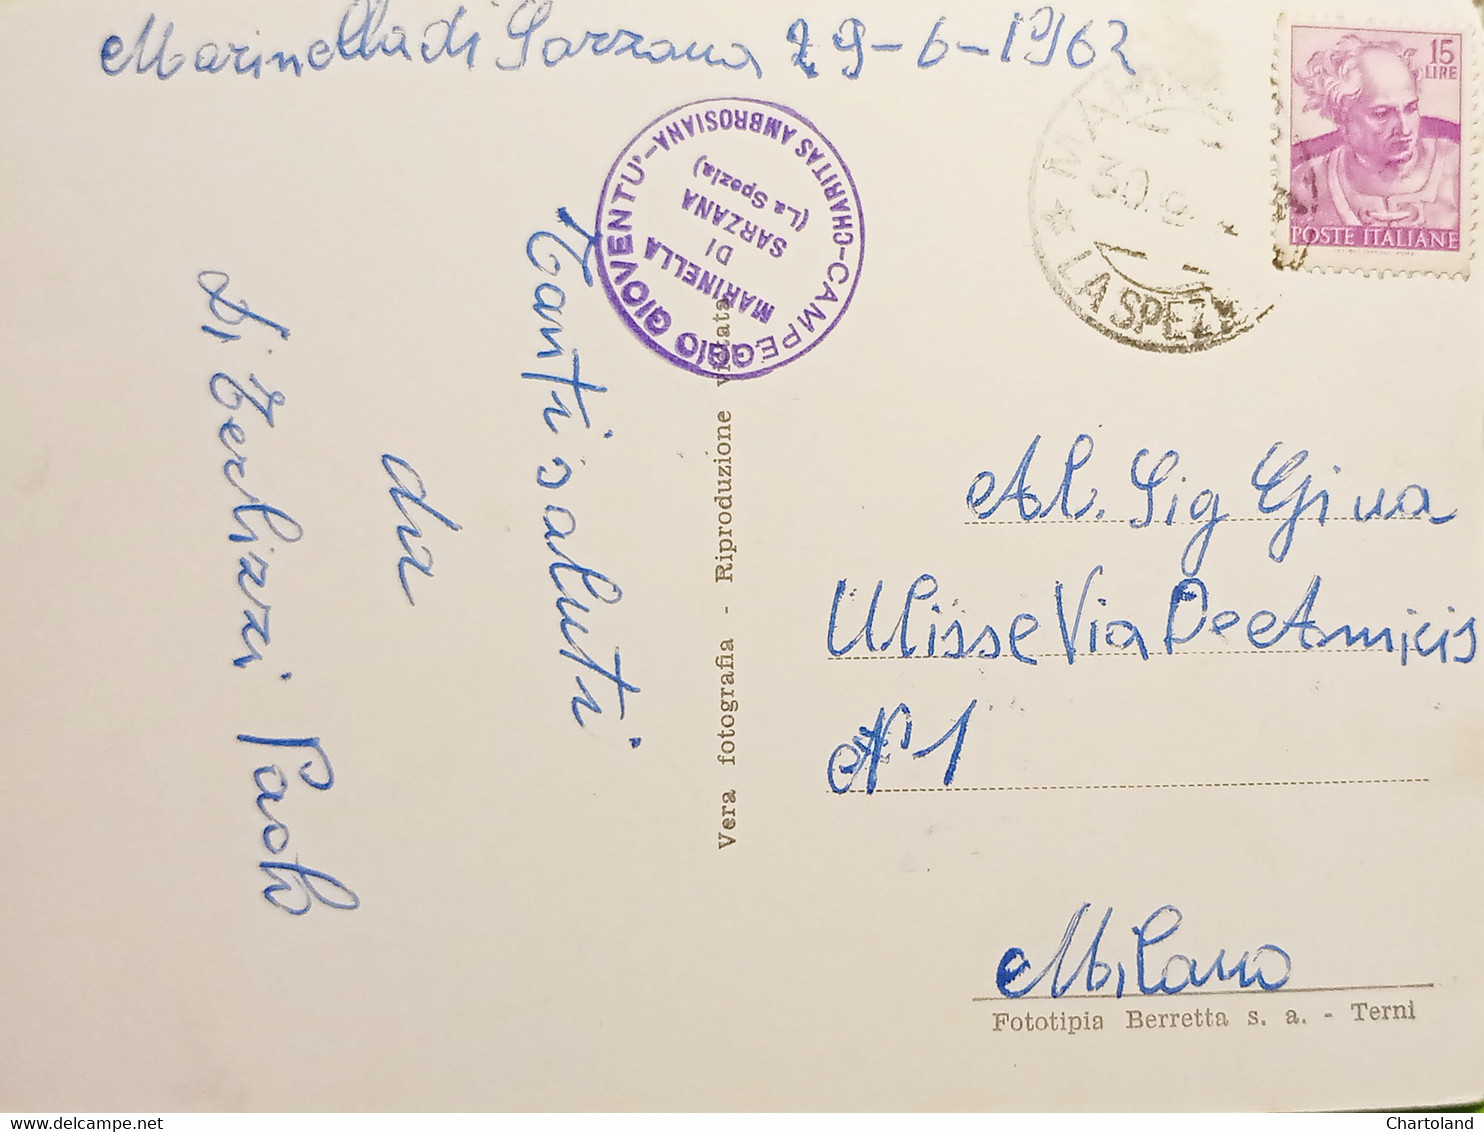 Marinella di Sarzana 29-6-1962
CAMPEGGIO GIOVENTU' - CHARITAS AMBROSIANA
MARINELLA
DI
SARZANA
(La Spezia)
30
LA SPEZ
15
LIRE
POSTE ITALIANE
Tanti saluti
da
Di Terlizzi Paolo
Vera fotografia - Riproduzione vietata
Al. Sig Giua
Ulisse Via De Amicis
N° 1
Milano
Fototipia Berretta s. a. - Terni
Chartoland